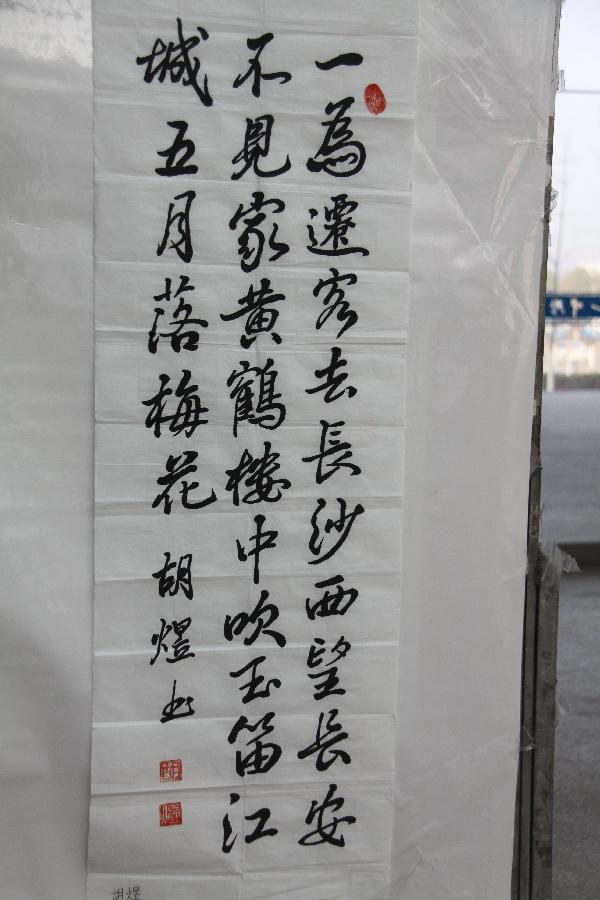 一為遷客去長沙西望長安
不見家黄鶴樓中吹玉笛江
城五月落梅花 胡煜书
胡煜